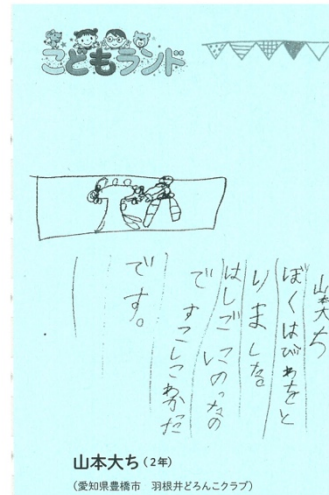 こどもランド
山本大ち
ぼくはびわをと
りました。
はしごにのったの
ですこしこわかた
です。
山本大ち(2年)
(愛知県豊橋市 羽根井どろんこクラブ)